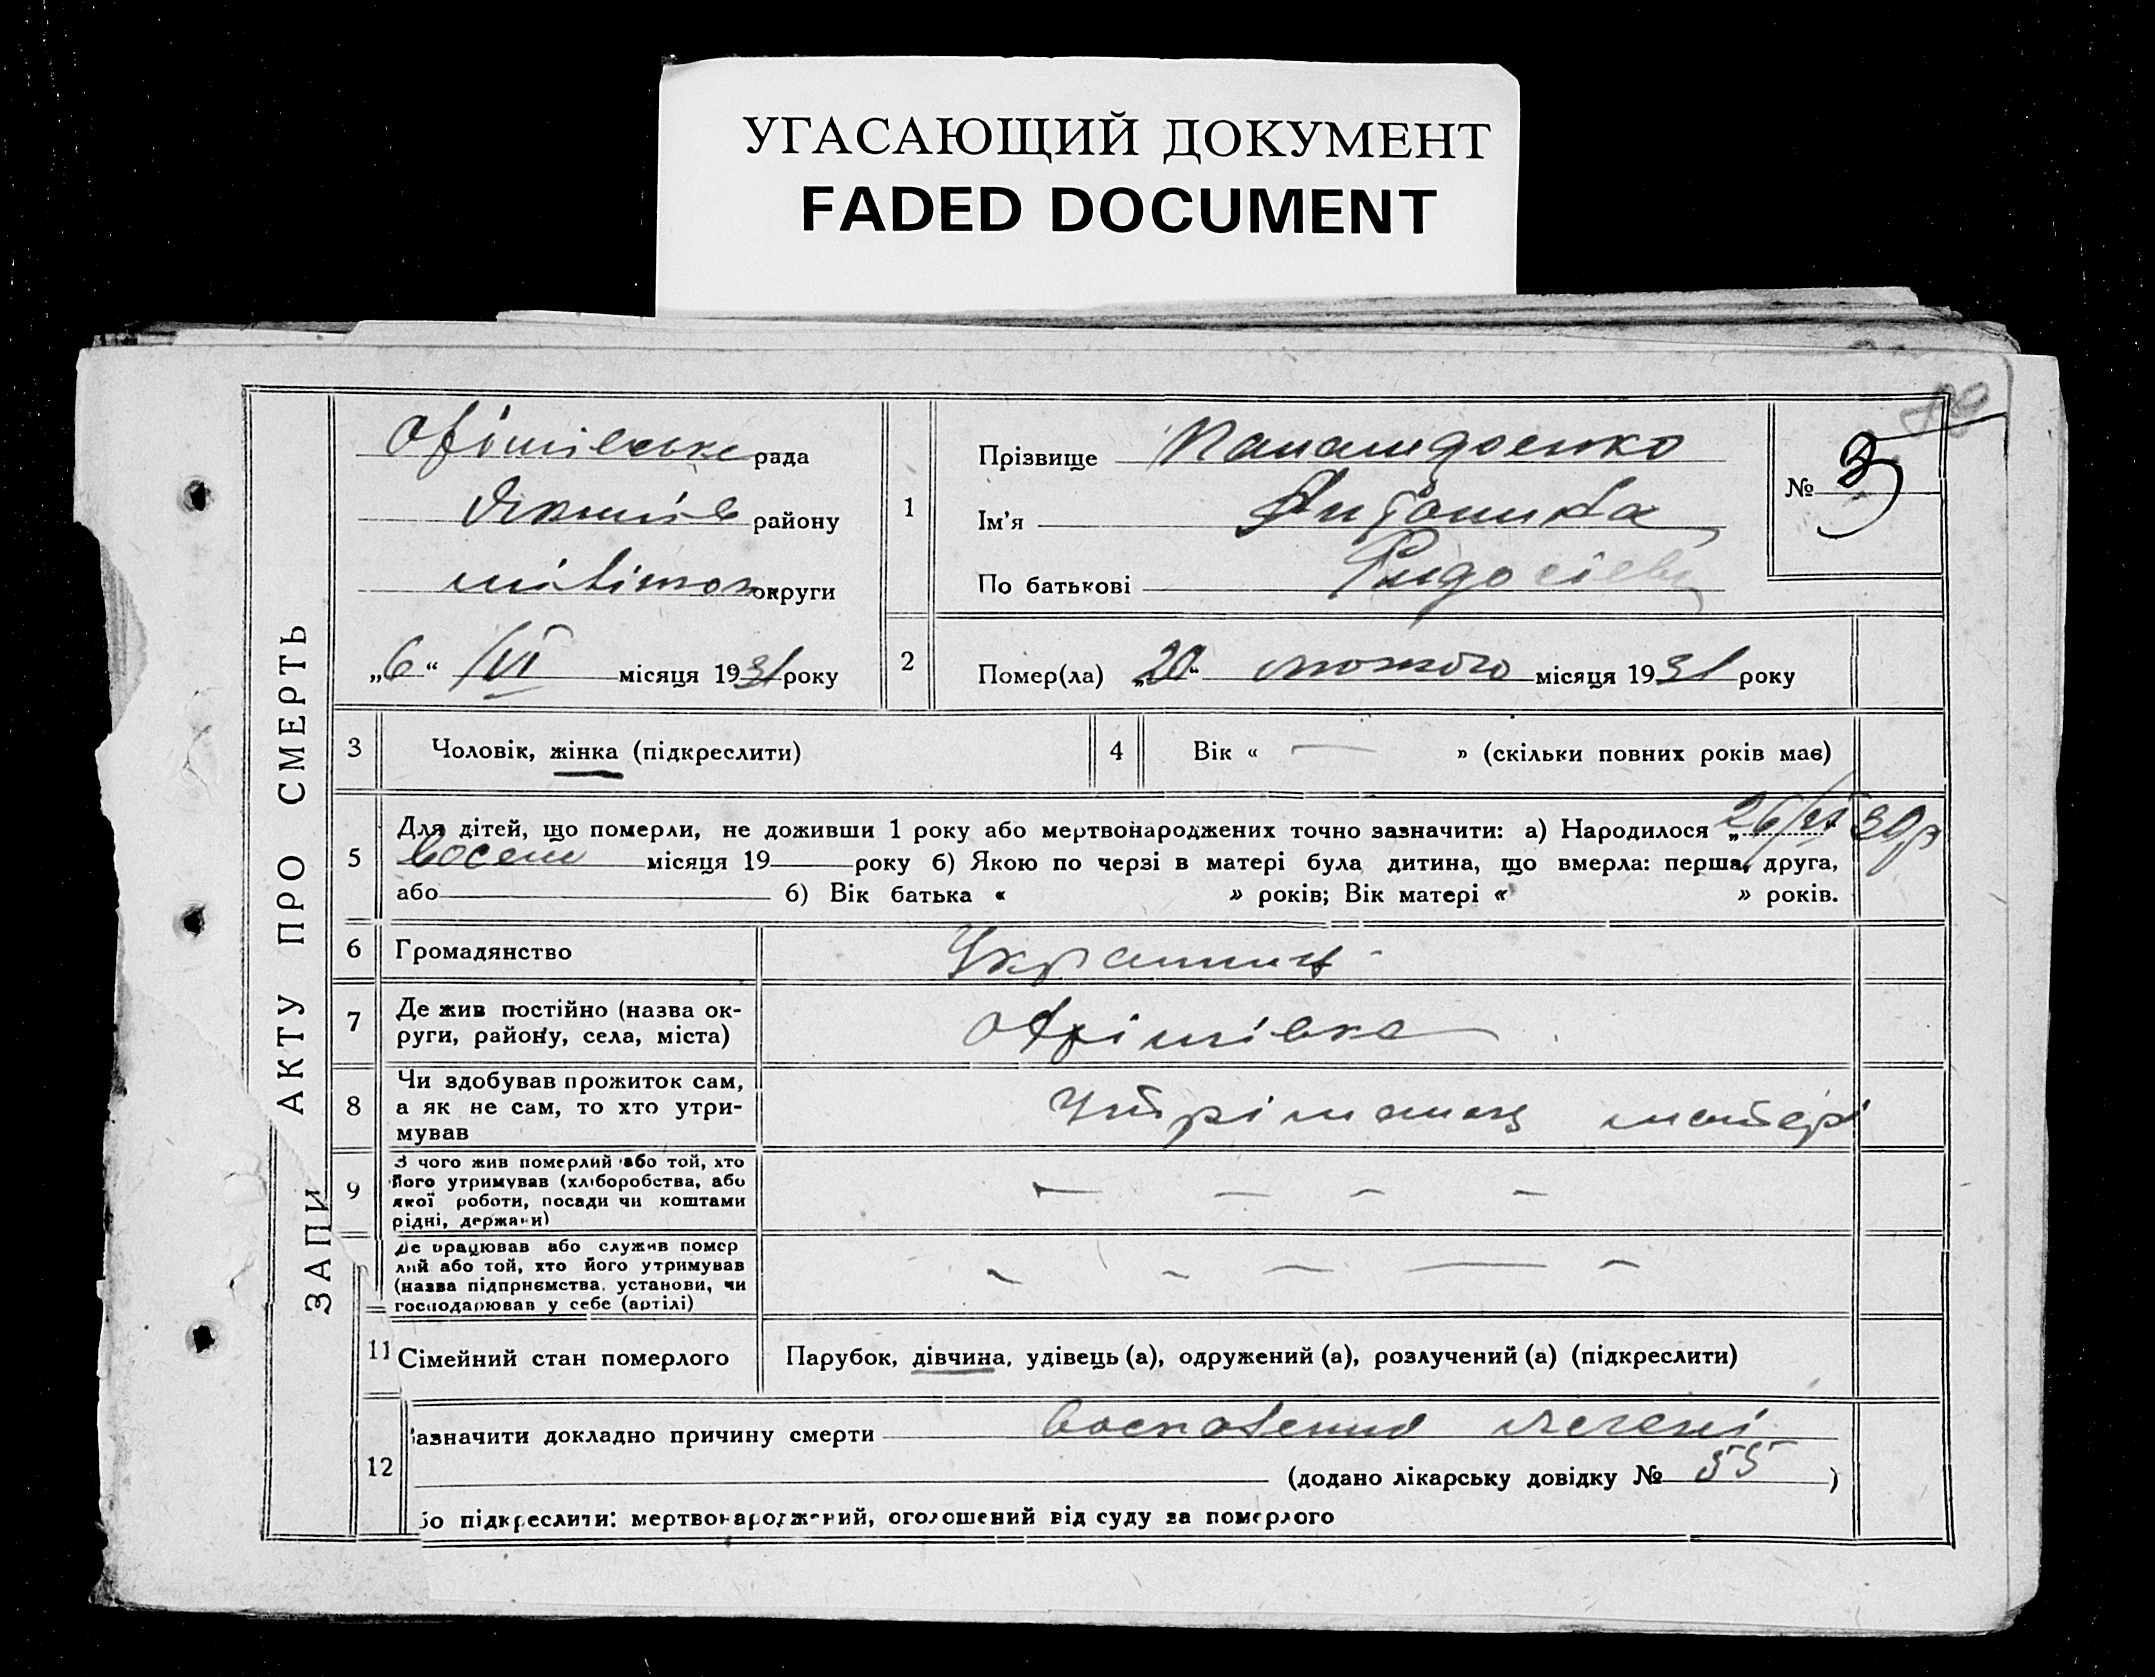 УГАСАЮЩИЙ ДОКУМЕНТ
FADED DOCUMENT
ЗАПИ АКТУ ПРО СМЕРТЬ
рада
району
округи
„6“ /VI місяця 1931 року
1
Прізвище
Ім'я
По батькові
№ 3
2
Помер(ла) „20“ лютого місяця 1931 року
3
Чоловік, жінка (підкреслити)
4
Вік « — » (скільки повних років має)
5
Для дітей, що померли, не доживши 1 року або мертвонароджених точно зазначити: а) Народилося „26/VI“ 30р
восем місяця 19 року б) Якою по черзі в матері була дитина, що вмерла: перша, друга,
або б) Вік батька « » років; Вік матері « » років.
6
Громадянство
7
Де жив постійно (назва ок-
руги, району, села, міста)
8
Чи здобував прожиток сам,
а як не сам, то хто утри-
мував
матері
9
З чого жив померлий або той, хто
його утримував (хліборобства, або
якої роботи, посади чи коштами
рідні, держави)
Де працював або служив помер
лий або той, хто його утримував
(назва підприємства, установи, чи
господарював у себе (артілі)
11
Сімейний стан померлого
Парубок, дівчина, удівець (а), одружений (а), розлучений (а) (підкреслити)
12
азначити докладно причину смерти
легені
(додано лікарську довідку № 55)
бо підкреслити: мертвонароджений, оголошений від суду за померлого